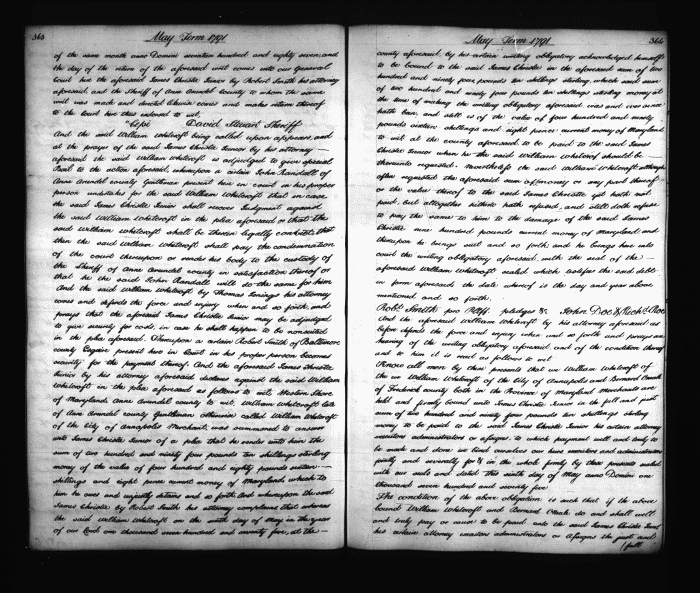 363
May Term 1791
of the same month anno Domini seventeen hundred and eighty seven and
the day of the return of the aforesaid writ comes into our general
Court here the aforesaid James Christie Junior by Robert Smith his attorney
aforesaid and the Sheriff of Ann Arundel County to whom the same
writ was made and directed likewise comes and makes return thereof
to the Court here thus indorsed to wit,
Cepi David Steuart Sheriff
And the said William Whitcroft being called upon appears, and
at the prayer of the said James Christie Junior by his attorney
aforesaid the said William Whitcroft is adjudged to give special
Bail to the action aforesaid, whereupon a certain John Randall of
Anne Arundel County Gentleman present here in Court in his proper
person undertakes for the said William Whitcroft that in case
the said James Christie Junior shall recover Judgment against
the said William Whitcroft in the plea aforesaid or that the
said William Whitcroft shall be therein legally convicted that
then the said William Whitcroft shall pay the condemnation
of the Court thereupon or render his body to the custody of
the Sheriff of Ann Arundel County in satisfaction thereof or
that he the said John Randall will do the same for him
And the said William Whitcroft by Thomas Jenings his attorney
comes and defends the force and injury when and so forth, and
prays that the aforesaid James Christie Junior may be adjudged
to give security for costs, in case he shall happen to be nonsuited
in the plea aforesaid. Thereupon a certain Robert Smith of Baltimore
County Esquire present here in Court in his proper person becomes
security for the payment thereof. And the aforesaid James Christie
Junior by his attorney aforesaid declares against the said William
Whitcroft in the plea aforesaid as follows to wit, Western Shore
of Maryland Anne Arundel County to wit, William Whitcroft late
of Ann Arundel County Gentleman otherwise called William Whitcroft
of the City of Annapolis Merchant was summoned to answer
unto James Christie Junior of a plea that he render unto him the
sum of two hundred and ninety four pounds ten shillings sterling
money of the value of four hundred and eighty pounds sixteen
shillings and eight pence current money of Maryland which to
him he owes and unjustly detains and so forth And whereupon the said
James Christie by Robert Smith his attorney complains that whereas
the said William Whitcroft on the sixth day of May in the year
of our Lord one thousand seven hundred and seventy five, at the
May Term 1791
364
County aforesaid, by his certain writing obligatory acknowledged himself
to be bound to the said James Christie in the aforesaid sum of two
hundred and ninety four pounds ten shillings sterling, which said sum
of two hundred and ninety four pounds ten shillings sterling money at
the time of making the writing obligatory aforesaid, was and ever since
hath been, and still is of the value of four hundred and ninety
pounds sixteen shillings and eight pence current money of Maryland
to wit at the County aforesaid to be paid to the said James
Christie Junior when he the said William Whitcroft should be
thereunto requested. Nevertheless the said William Whitcroft although
often requested the aforesaid sum of money or any part thereof
or the value thereof to the said James Christie yet hath not
paid, but altogether hitherto hath refused, and still doth refuse
to pay the same to him to the damage of the said James
Christie nine hundred pounds current money of Maryland and
thereupon he brings suit and so forth and he brings here into
Court the writing obligatory aforesaid, with the seal of the
aforesaid William Whitcroft sealed which testifies the said debt
in form aforesaid the date whereof is the day and year above
mentioned and so forth.
Robt. Smith pro Plff. pledges &c John Doe & Richd. Roe
And the aforesaid William Whitcroft by his attorney aforesaid as
before defend the force and injury when and so forth and prays
hearing of the writing obligatory aforesaid and of the condition thereof
and to him it is read as follows to wit
Know all men by these presents that we William Whitcroft of
the City of Annapolis and Bernard
of Frederick County both in the Province of Maryland Merchants are
held and firmly bound unto James Christie Junior in the full and just
sum of two hundred and ninety four pounds ten shillings sterling
money to be paid to the said James Christie Junior his certain attorney
executors administrators or assigns, to which payment well and truly to
be made and done we bind ourselves our heirs executors and administrators
jointly and severally for & in the whole firmly by these presents sealed
with our seals and dated this sixth day of May anno Domini one
thousand seven hundred and seventy five
The condition of the above obligation is such that if the above
bound William Whitcroft and Bernard do and shall well
and truly pay or cause to be paid unto the said James Christie Junior
his certain attorney executors administrators or assigns the just and
full